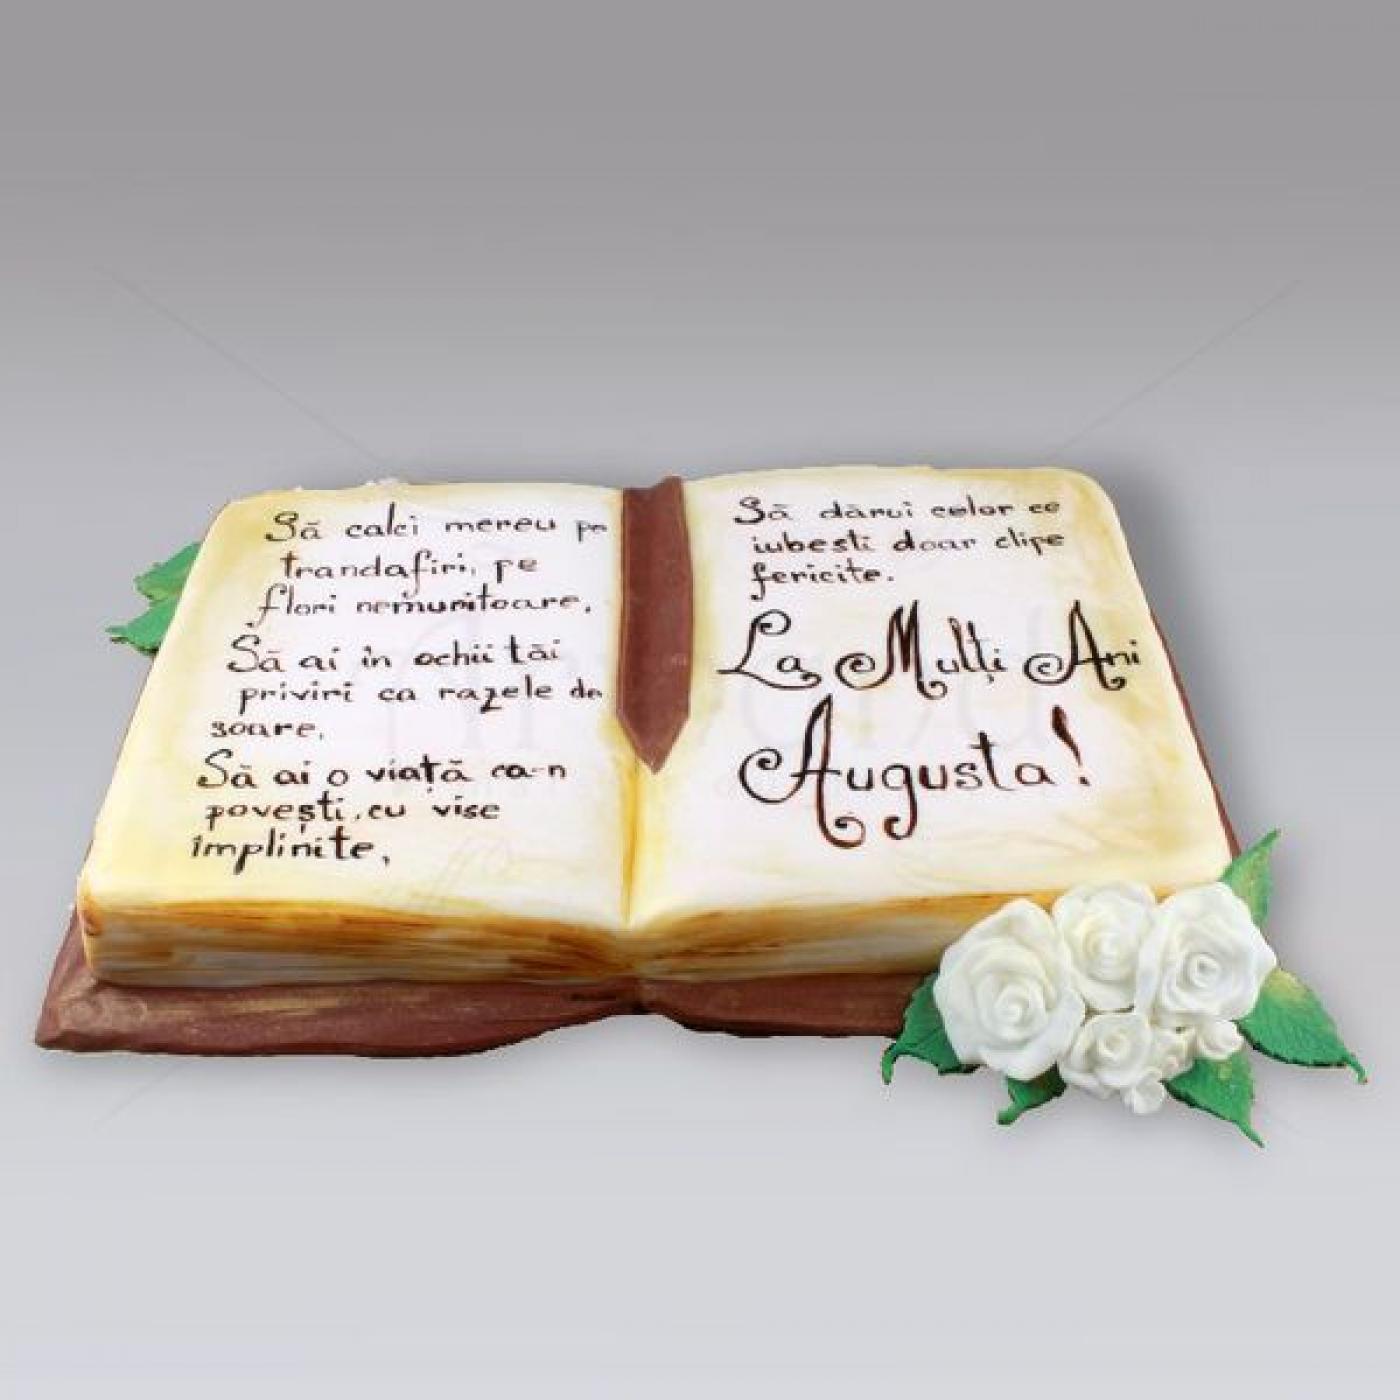 Să calci mereu pe
trandafiri, pe
flori nemuritoare,
Să ai în ochii tăi
priviri ca razele de
soare,
Să ai o viață ca-n
povești, cu vise
împlinite,
Să dărui celor ce
iubesti doar clipe
fericite.
La Mulți Ani
Augusta!